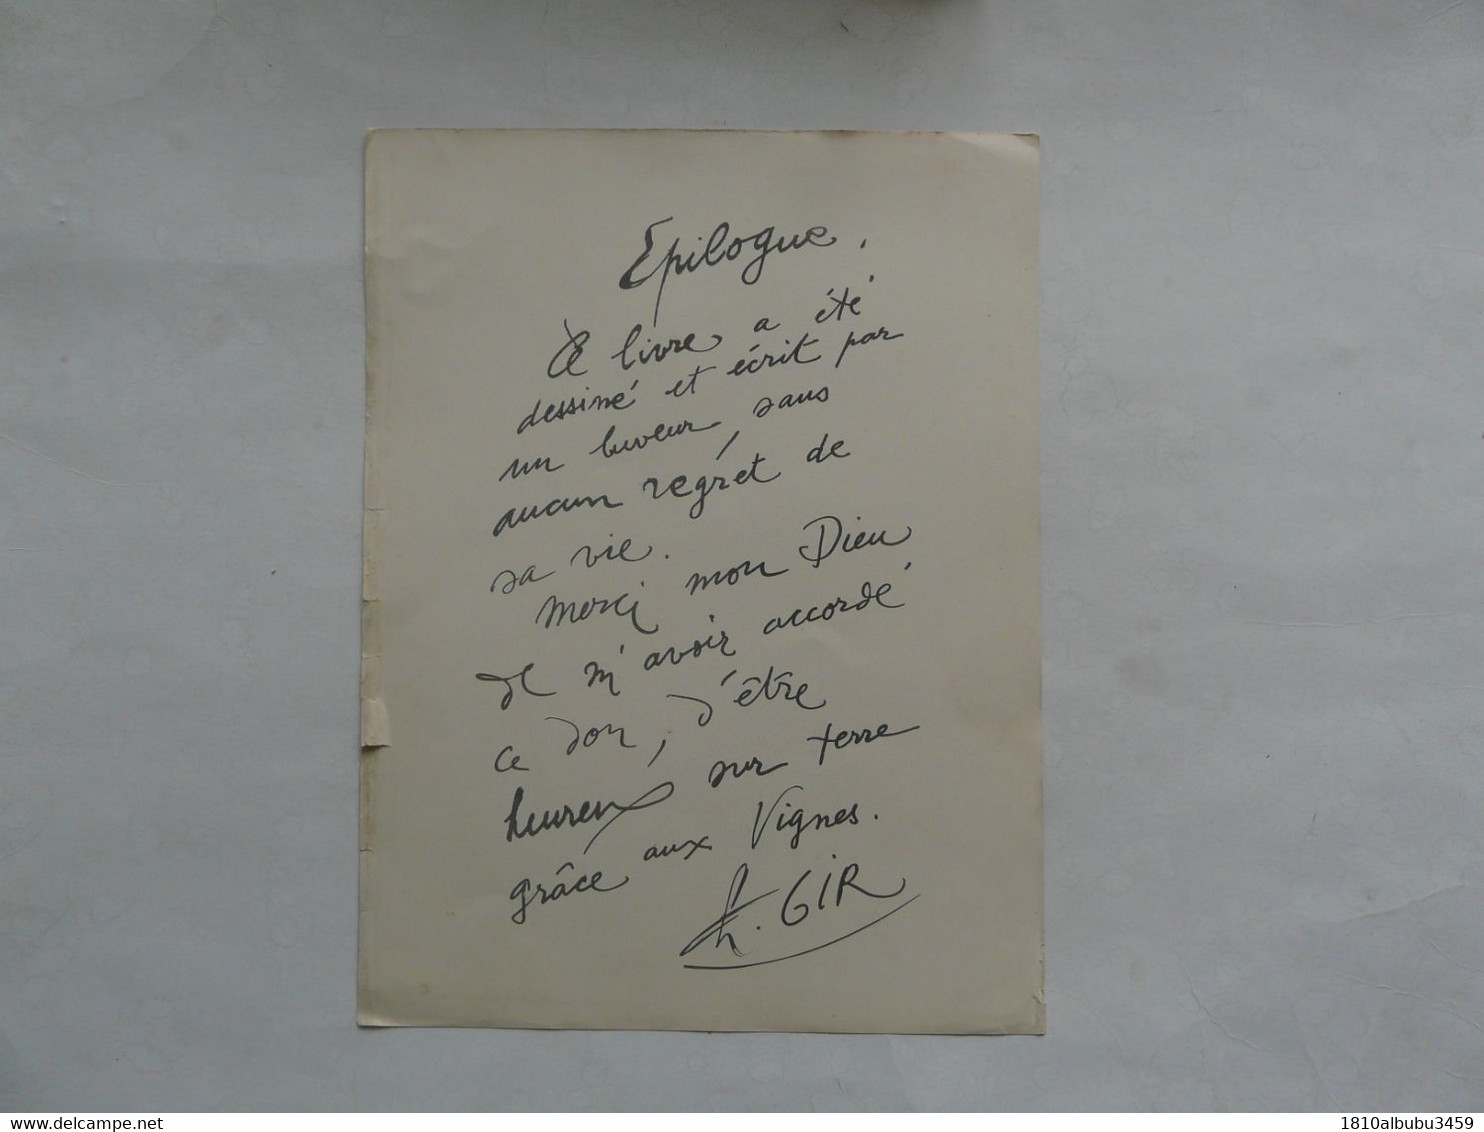 Epilogue.
Ce livre a été
dessiné et écrit par
un buveur, sans
aucun regret de
sa vie.
Merci mon Dieu
de m'avoir accordé
ce don, d'être
heureux sur terre
grâce aux Vignes.
h. GIR
www.delcampe.net
1810albubu3459